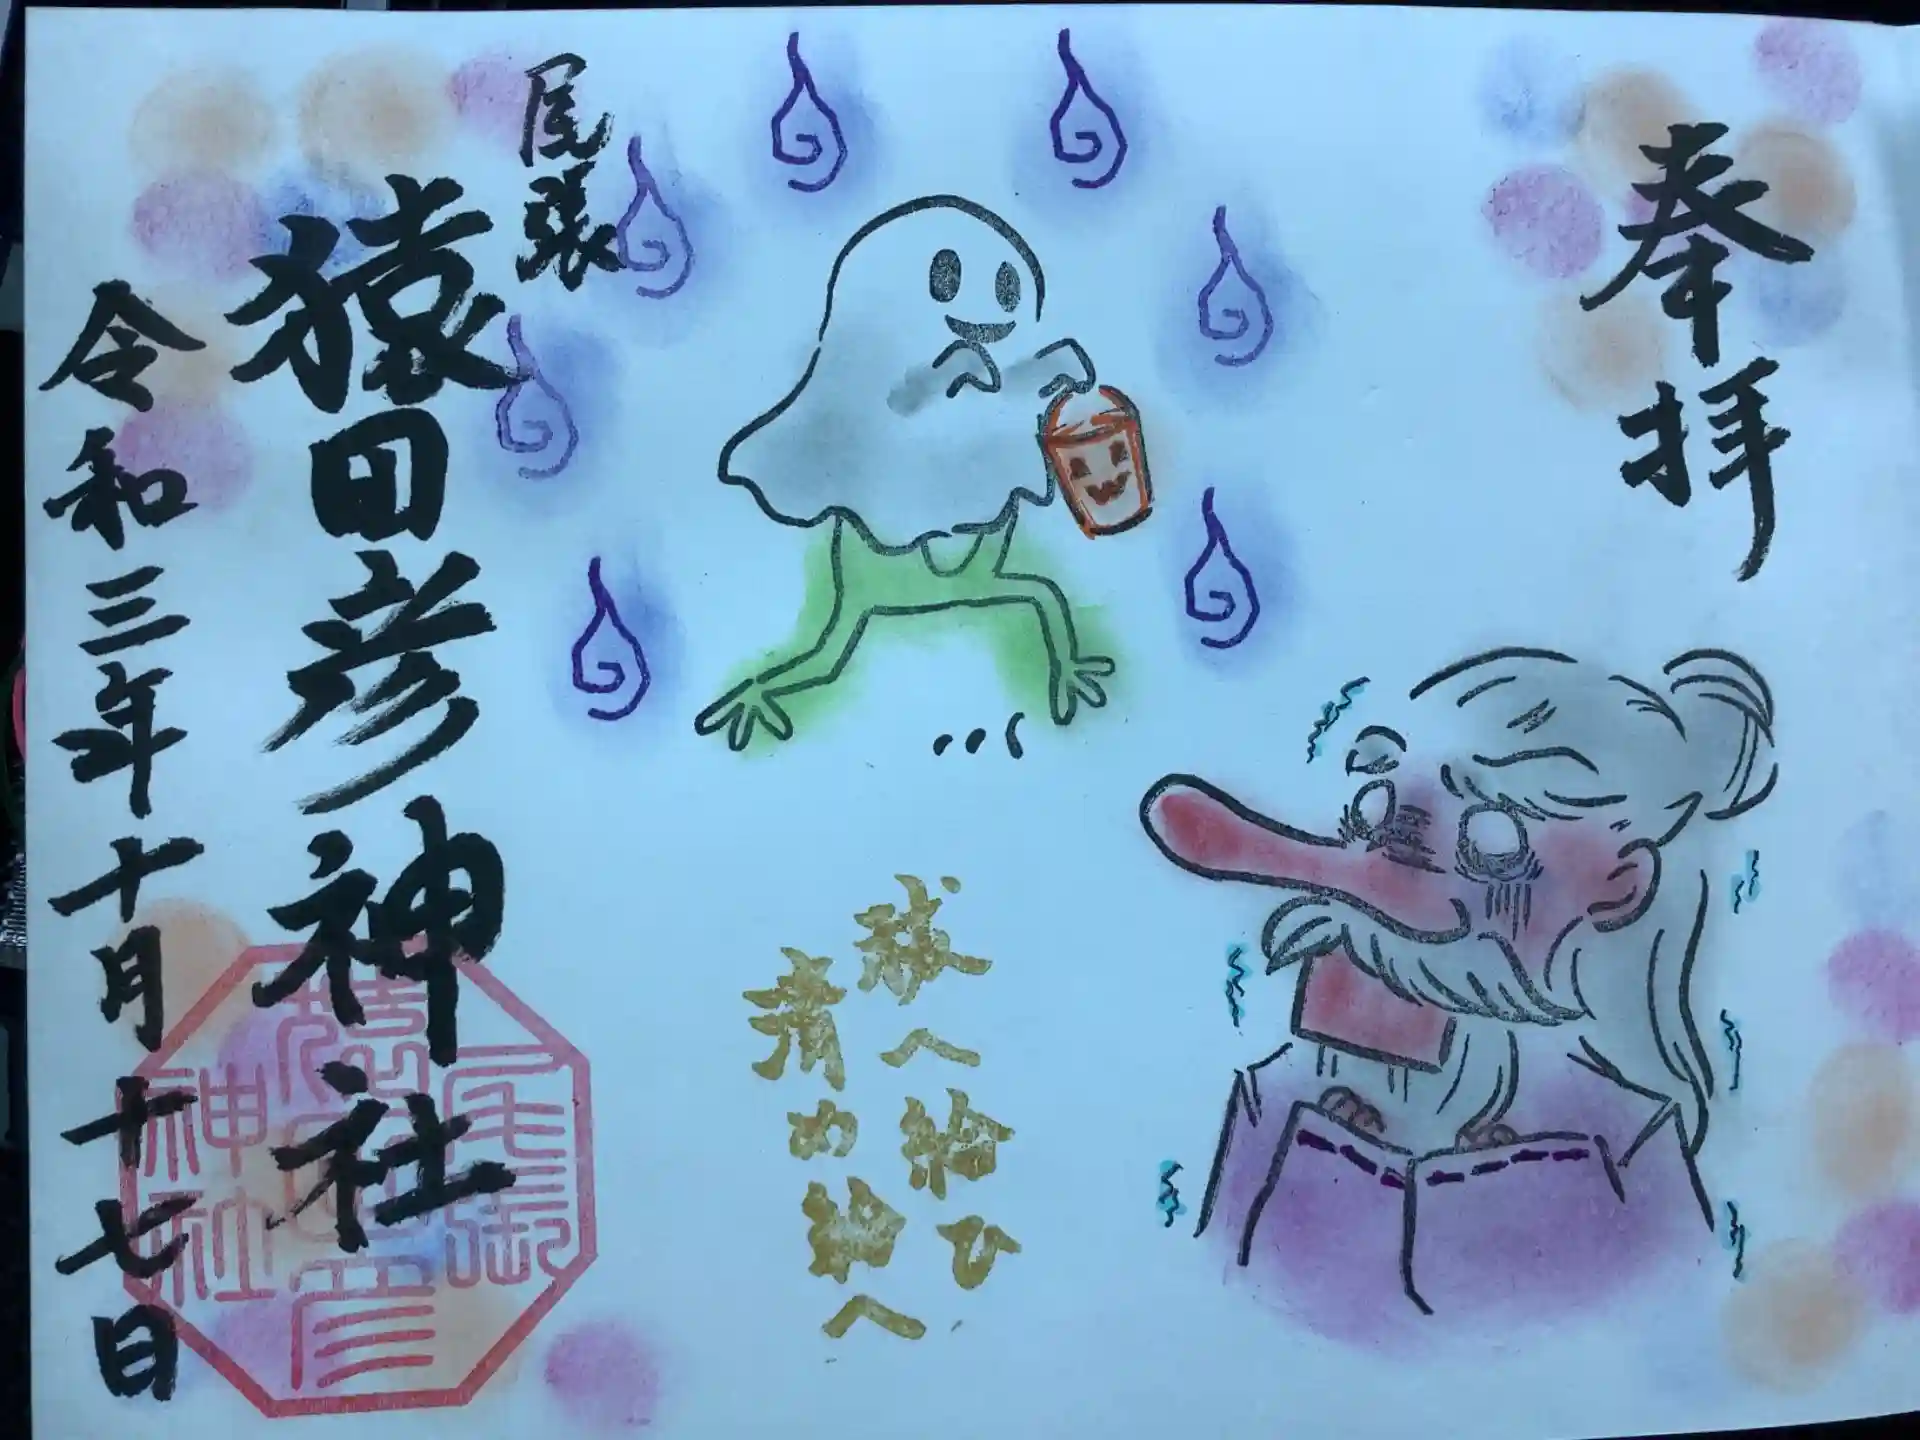 奉拝
祓へ給ひ
清め給へ
尾張
猿田彦神社
令和三年十月十七日
尾張
猿田彦
神社